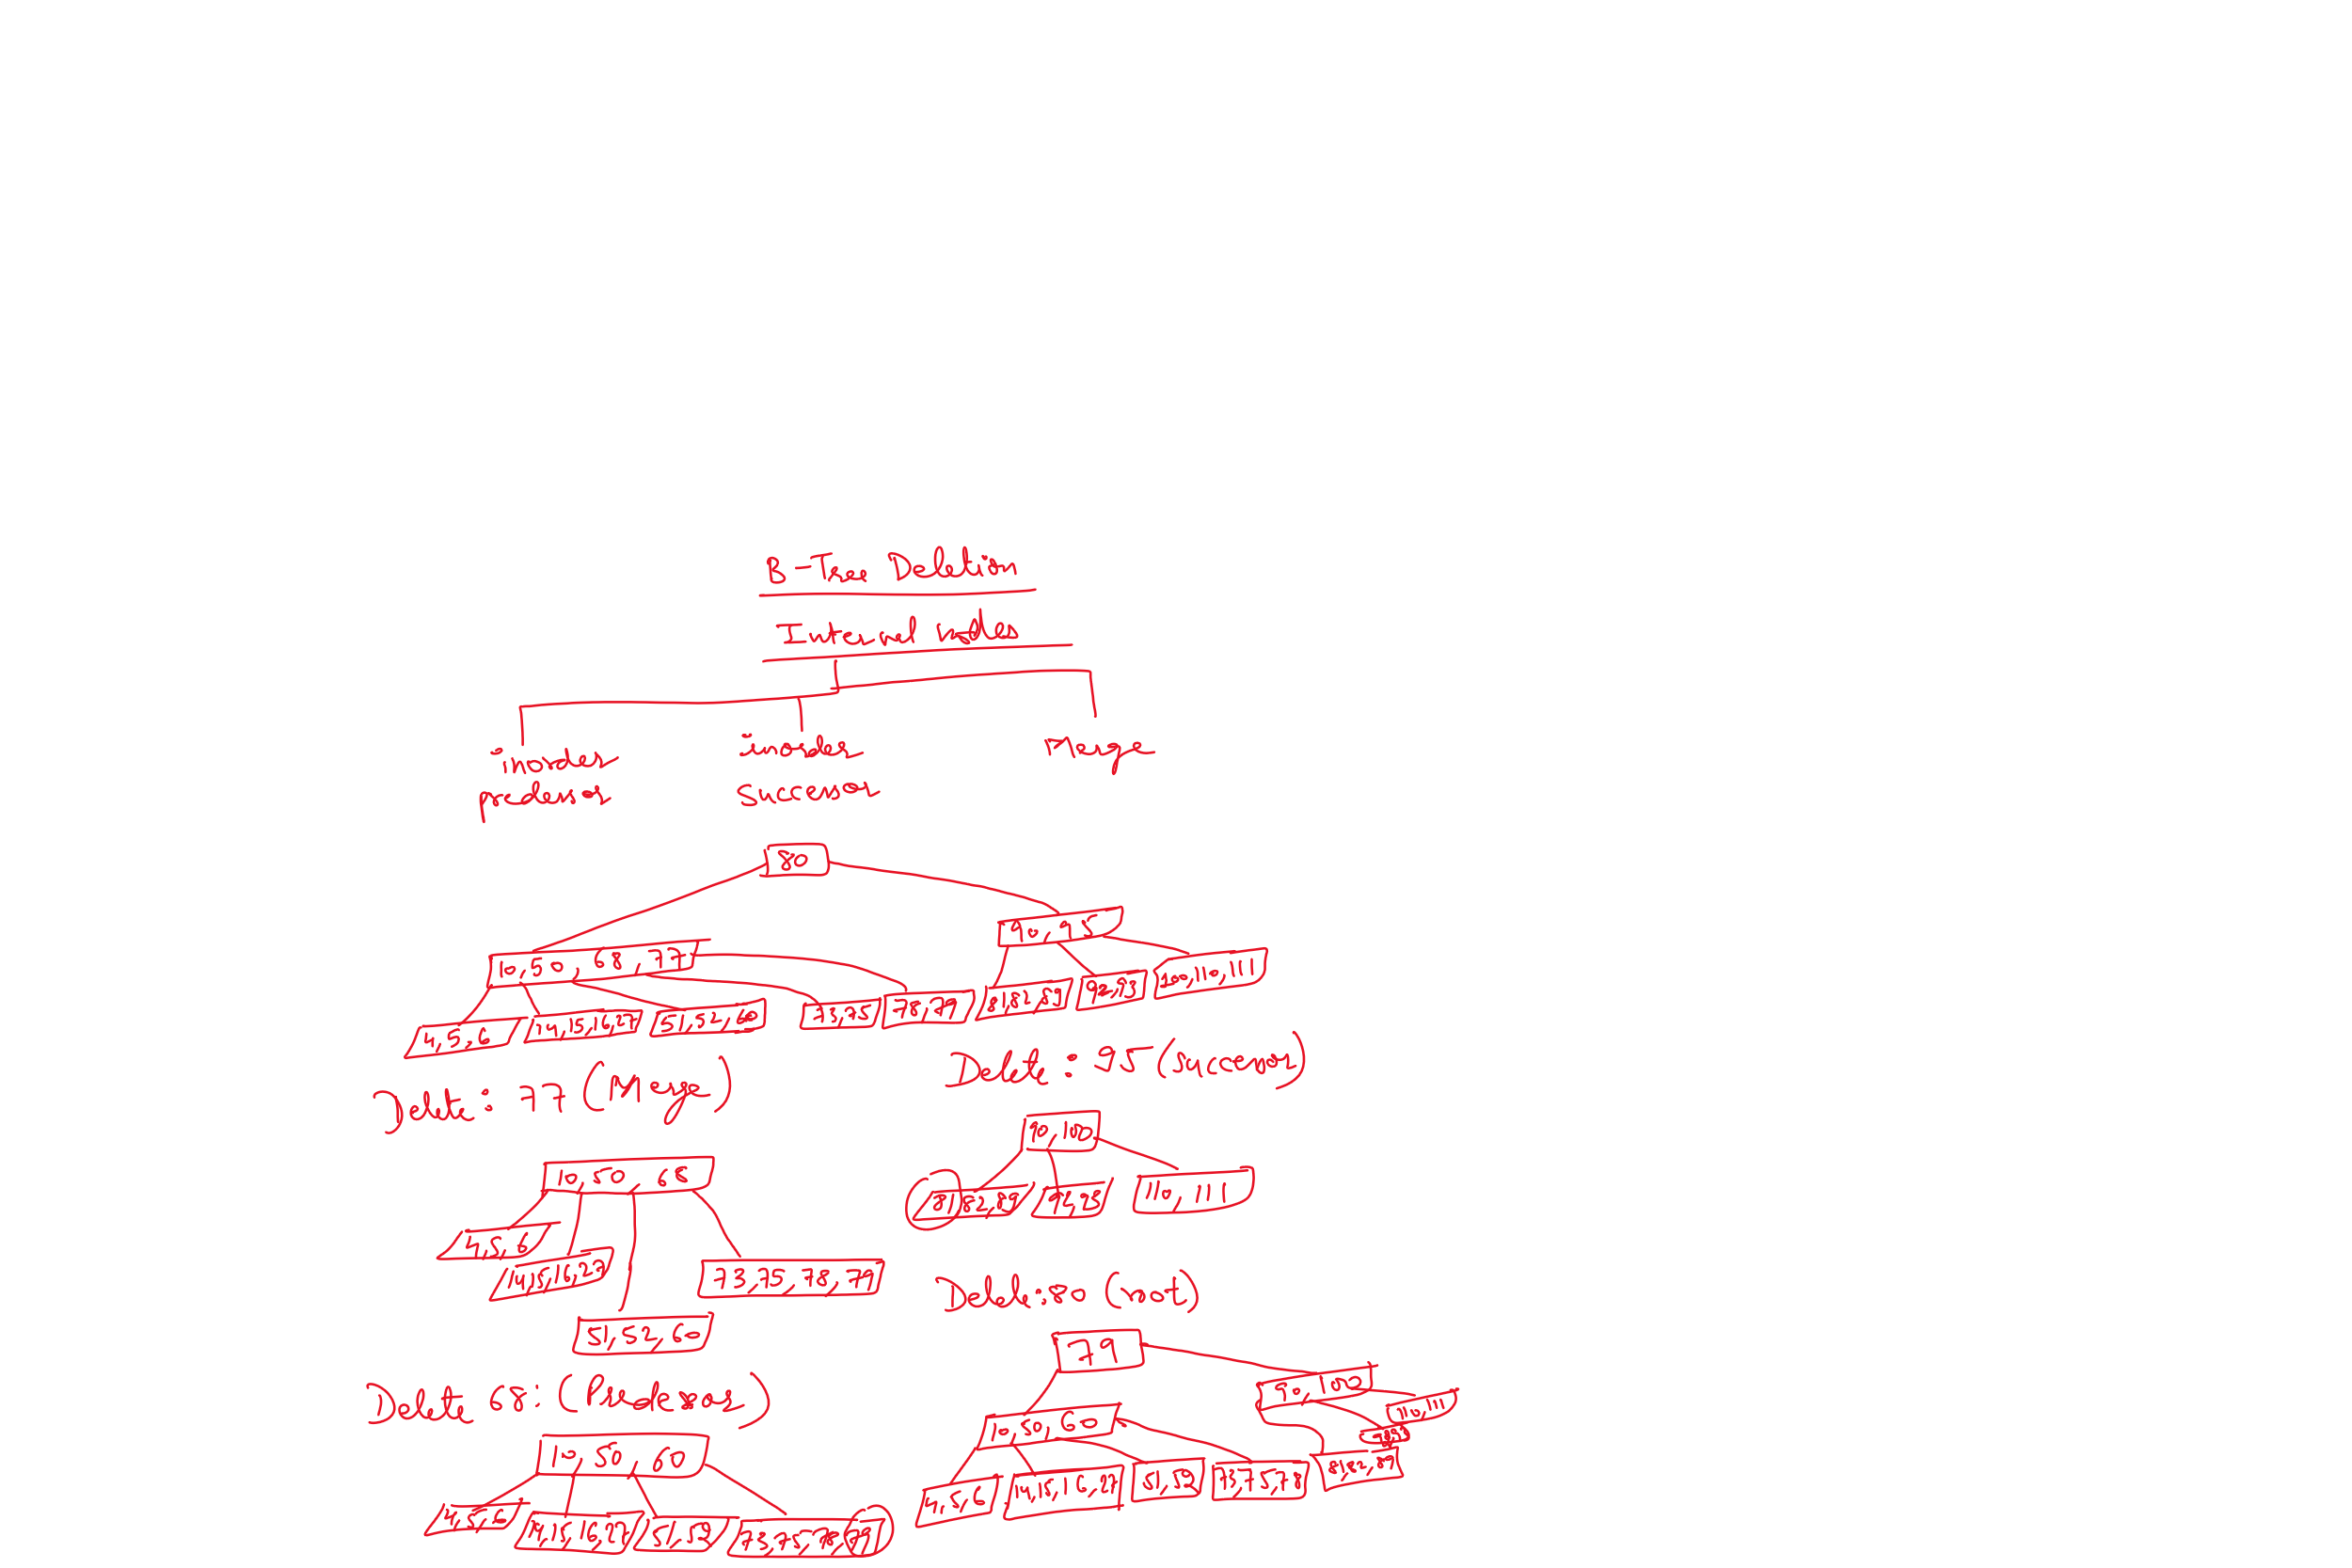 B-Tree Deletion
Internal nodes
inorder
predecessor
inorder
successor
Merge
80
10, 50, 68, 77
90, 95
4, 5, 6
14, 15, 16, 27
51, 52, 60
73, 75
78, 79
81, 82, 89
92, 93
100, 110, 111
Delete: 77 (Merge)
10, 50, 68
4, 5, 6
14, 15, 16, 27
51, 52, 60
73, 75, 78, 79
Delete 68: (Predecessor)
10, 50, 60
4, 5, 6
14, 15, 16, 27
51, 52
73, 75, 78, 79
Delete: 95 (Successor)
90, 100
81, 82, 89
92, 93
110, 111
Delete: 80 (root)
79
10, 50, 60
90, 100
4, 5, 6
14, 15, 16, 27
51, 52
73, 75, 78
81, 82, 89
92, 93
110, 111